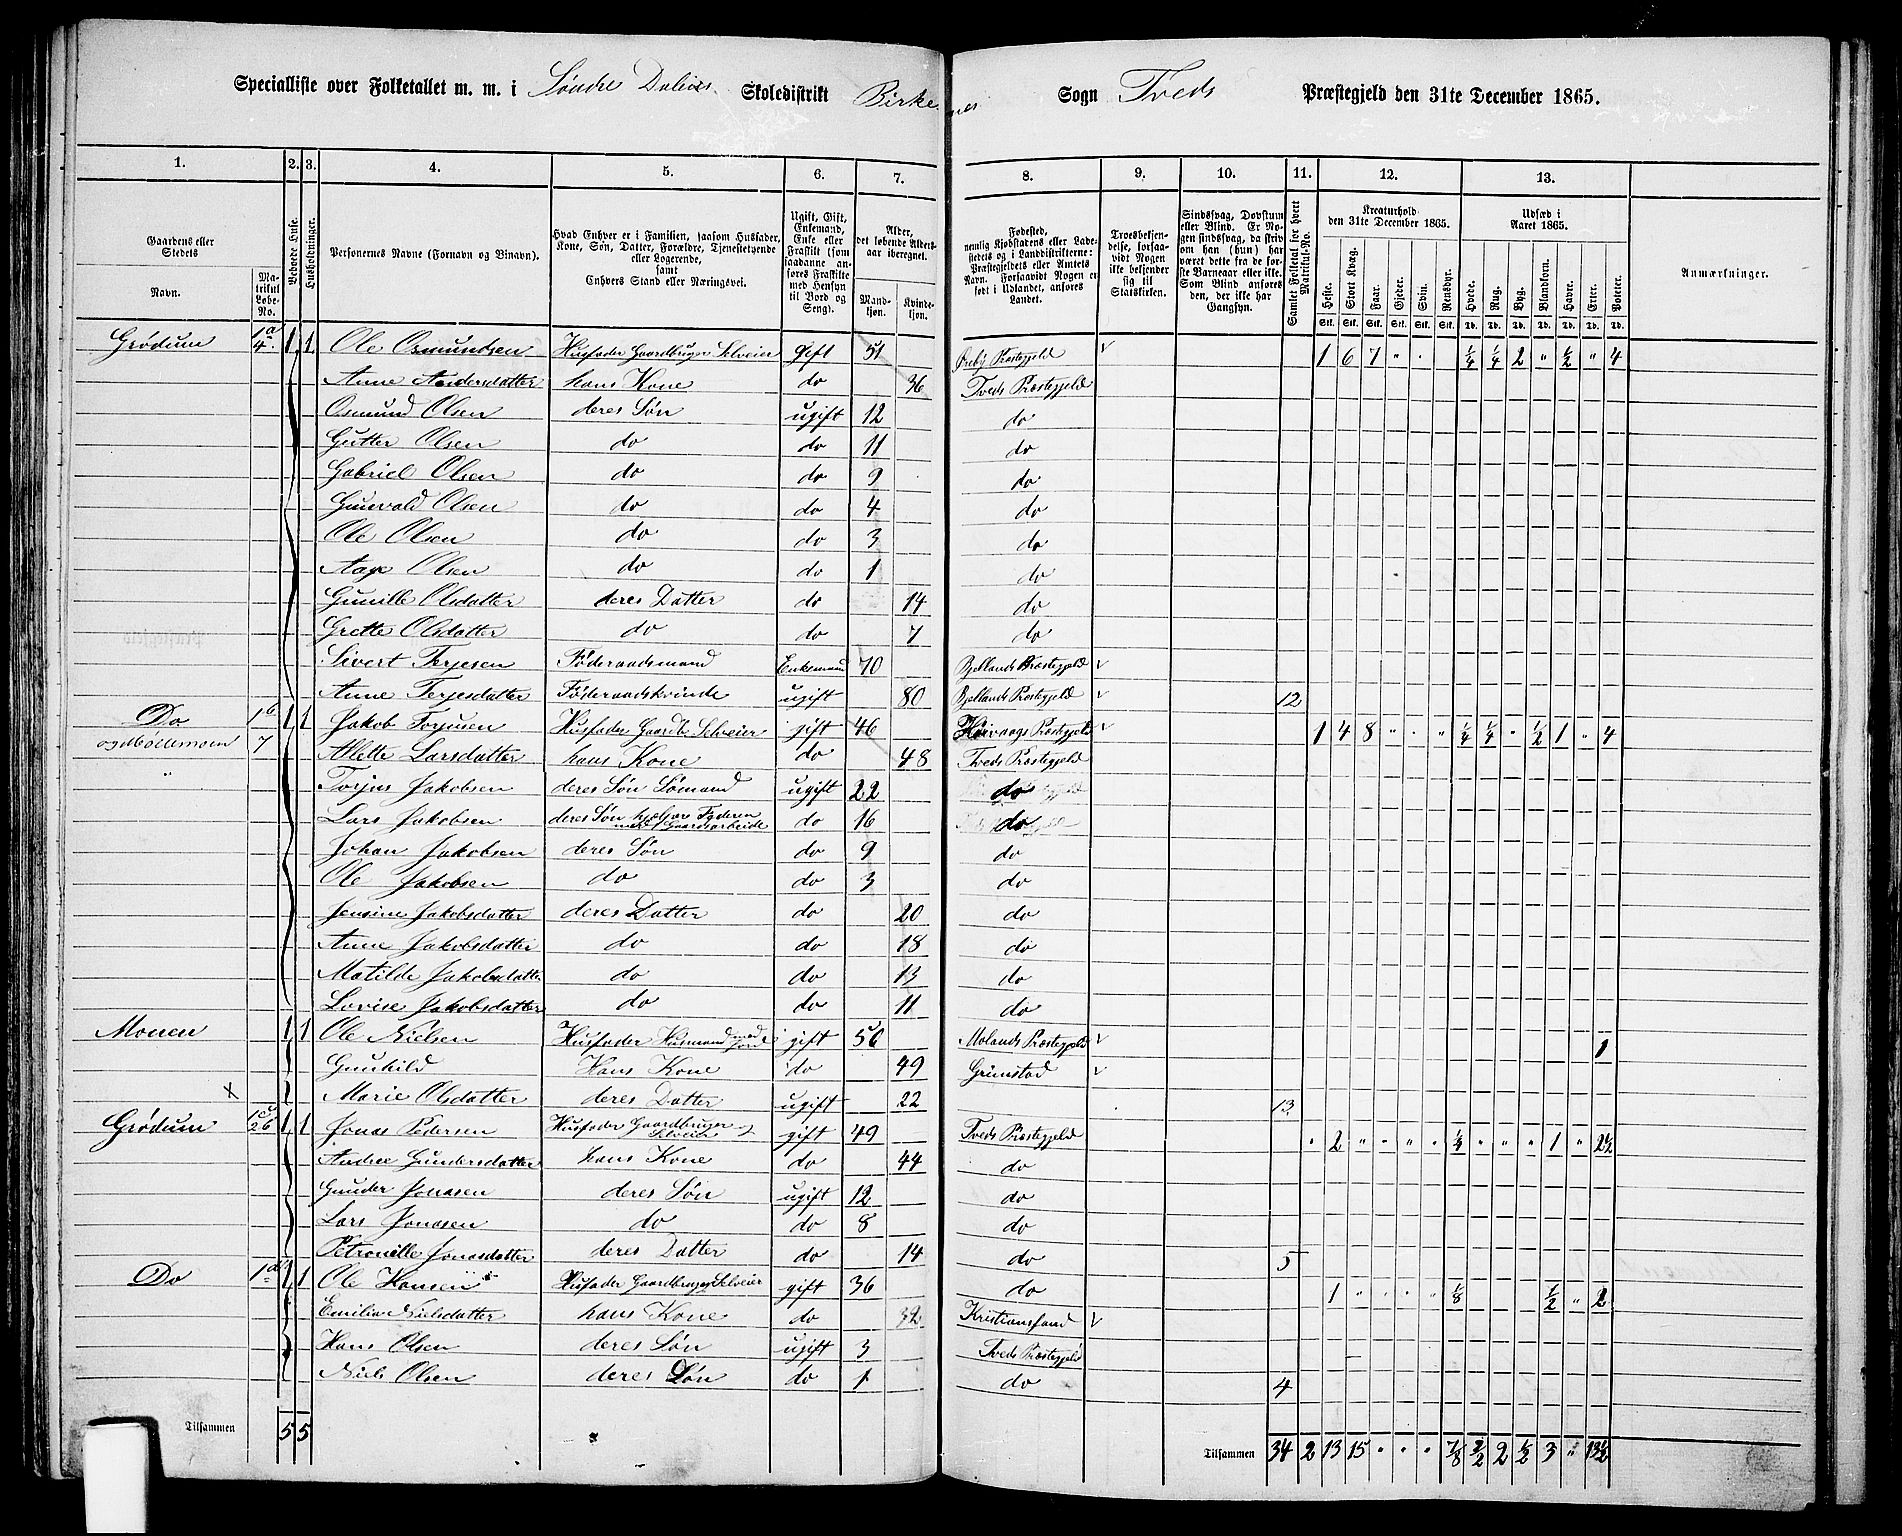 Specialliste over Folketallet m. m. i Søndre Skoledistrikt Birkenes Sogn Tveds Præstegjeld den 31te December 1865.
1. 2. 3. 4. 5. 6. 7. 8. 9. 10. 11. 12. 13.
Gaardens eller Stedets Navn. Matrikul Løbe-No. Beboede Huse. Husholdninger. Personernes Navne (Fornavn og Binavn). Hvad Enhver er i Familien, saasom Husfader, Kone, Søn, Datter, Forældre, Tjenestetyende eller Logerende, samt Enhvers Stand eller Næringsvei. Ugift, Gift, Enkemand, Enke eller Fraskilt (som saadanne anføres Fraskilte med Hensyn til Bord og Seng). Alder, det løbende Alders-aar iberegnet. Mandkjøn. Kvindekjøn. Fødested, nemlig Kjøbstadens eller Ladestedets og i Landdistrikterne: Præstegjeldets eller Amtets Navn. Forsaavidt Nogen er født i Udlandet, anføres Landet. Troesbekjendelse, forsaavidt Nogen ikke bekjender sig til Statskirken. Sindssvag, Døvstum eller Blind. Er Nogen sindssvag, da skrives om han (hun) har været dette fra de første Barneaar eller ikke. Som Blind ansøres den, der ikke har Gangsyn. Samlet Folketal for hvert Matrikuls-No. Kreaturhold den 31te December 1865. Heste. Stort Kvæg. Faar. Gjeder. Svin. Rensdyr. Udsæd i Aaret 1865. Hvede. Rug. Byg. Blandkorn. Havre. Erter. Poteter. Anmærkninger.
Grødum 1a 4 1 1 Ole Osmundsen Husfader Gaardbruger Selveier Gift 51 Præstegjeld 1 6 7 " " 1/4 1/4 2 " 1/2 " 4
Anne Andersdatter hans Kone do 36 Tveds Præstegjeld
Osmund Olsen deres Søn ugift 12 do
Gutter Olsen do do 11 do
Gabriel Olsen do do 9 do
Gunvald Olsen do do 4 do
Ole Olsen do do 3 do
Aage Olsen do do 1 do
Gunille Olsdatter deres Datter do 14 do
Grette Olsdatter do do 7 do
Sivert Terjesen Føderaadsmand Enkemand 70 Bjellands Præstegjeld
Anne Terjesdatter Føderaadskvinde ugift 80 Bjellands Præstegjeld 12
Do 1b 7 1 1 Jakob Torjusen Husfader Gaardb Selveier gift 46 Høivaags Præstegjeld 1 4 8 " " " 1/4 1/4 " 1/2 1 " 4
Alette Larsdatter hans Kone do 48 Tveds Præstegjeld
" Torjus Jakobsen deres Søn Sømand ugift 22 do
Lars Jakobsen deres Søn hjelper Faderen med Gaardsarbeide do 16 do
Johan Jakobsen deres Søn do 9 do
Ole Jakobsen do do 3 do
Jensine Jakobsdatter deres Datter do 20 do
Anne Jakobsdatter do do 18 do
Matilde Jakobsdatter do do 13 do
Lovise Jakobsdatter do do 11 do
Monen 1 1 Ole Nielsen Husfader Husmand med Jord gift 56 Molands Præstegjeld 1
Gunhild Hans Kone do 49 Grimstad
x Marie Olsdatter deres Datter ugift 22 13
Grødum 1c 26 1 1 Jonas Pedersen Husfader Gaardbruger Selveier gift 49 Tveds Præstegjeld " 2 " " " " 1/4 " " " 1 " 2 1/2
Andrea Gundersdatter hans Kone do 44 do
Gunder Jonasen deres Søn ugift 12 do
Lars Jonasen do do 8 do
Petronille Jonasdatter deres Datter do 14 do 5
Do 1d 1 1 Ole Hansen Husfader Gaardbruger Selveier gift 36 do 1 " " " " 1/8 1/2 " 2
Emilia Nielsdatter hans Kone do 32 Kristianssand
Hans Olsen deres Søn ugift 3 Tveds Præstegjeld
Niels Olsen deres Søn do 1 do 4
Tilsammen 5 5 Tilsammen 34 2 13 15 " " " 7/8 2/2 2 1/2 3 " 13 1/2